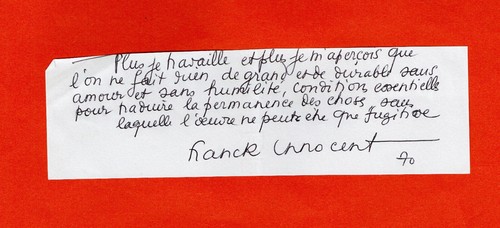 Plus je travaille et plus je m'aperçois que
l'on ne fait rien, de grand et de durable sans
amour et sans humilité, conditions essentielles
pour traduire la permanence des choses, sans
laquelle l'œuvre ne peut être que fugitive
Franck Innocent
70